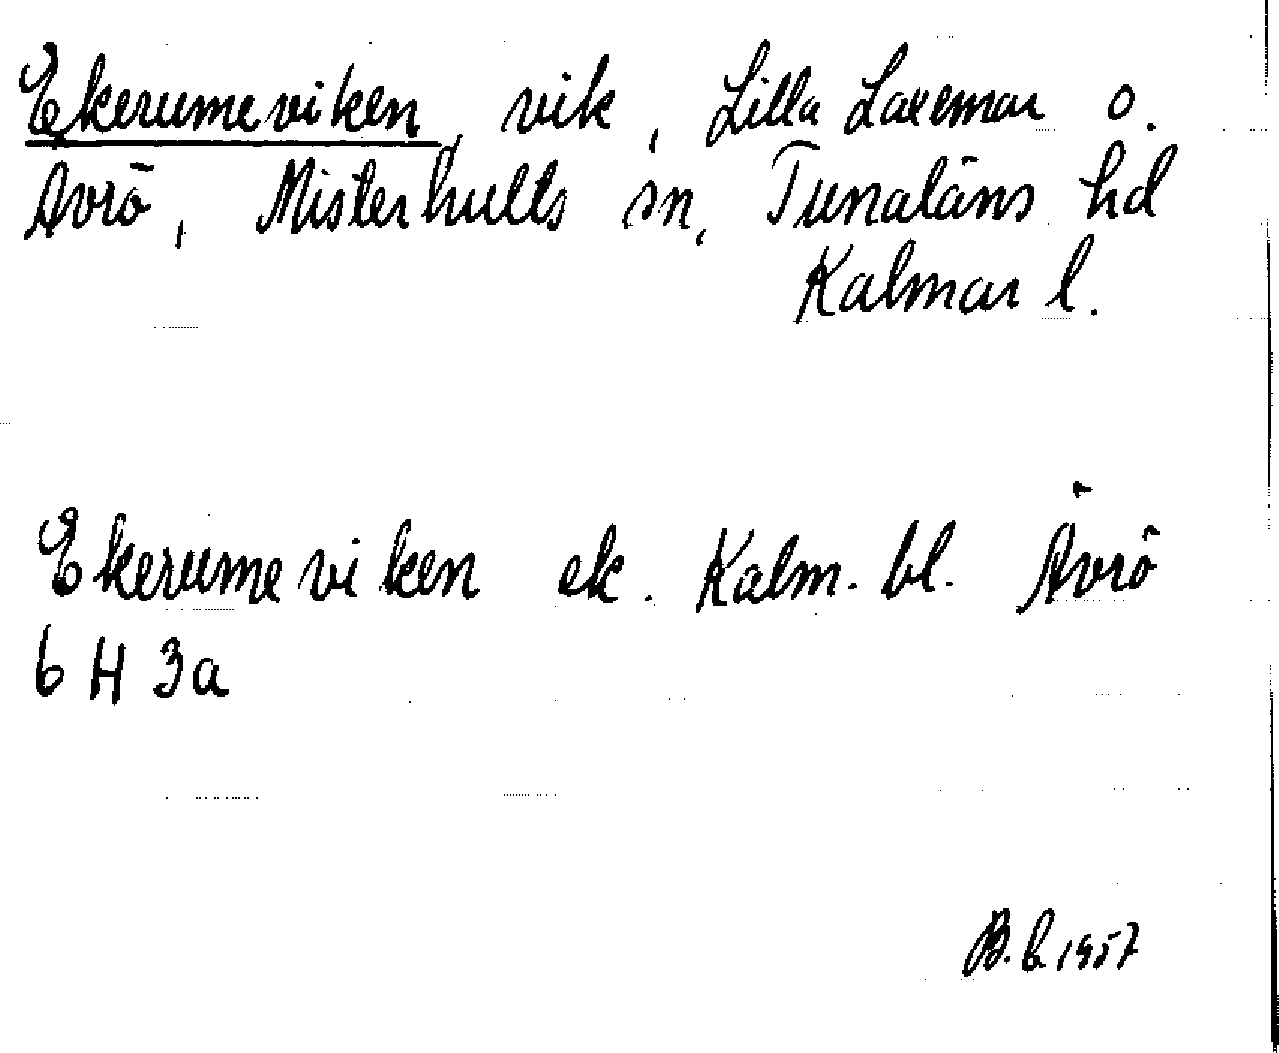 Ekerumeviken, vik, Lilla Laxemar o.
Ävrö, Misterhults sn, Tunaläns hd
Kalmar l.
Ekerumeviken ek. Kalm. bl. Ävrö
6 H 3a
B.b. 1957